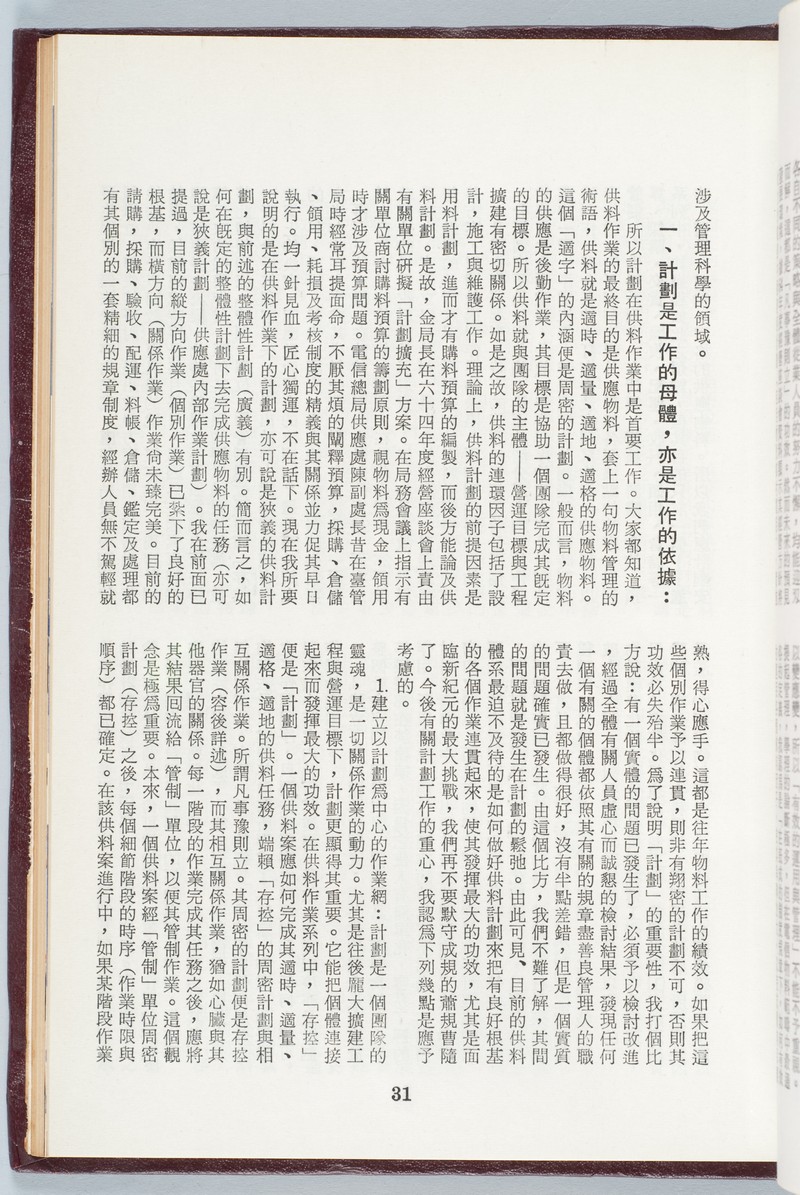 涉及管理科學的領域。
一、計劃是工作的母體，亦是工作的依據：
所以計劃在供料作業中是首要工作。大家都知道，
供料作業的最終目的是供應物料，套上一句物料管理的
術語，供料就是適時、適量、適地、適格的供應物料。
這個「適字」的內涵便是周密的計劃。一般而言，物料
的供應是後勤作業，其目標是協助一個團隊完成其旣定
的目標。所以供料就與團隊的主體——營運目標與工程
擴建有密切關係。如是之故，供料的連環因子包括了設
計，施工與維護工作。理論上，供料計劃的前提因素是
用料計劃，進而才有購料預算的編製，而後方能論及供
料計劃。是故，金局長在六十四年度經營座談會上責由
有關單位研擬「計劃擴充」方案。在局務會議上指示有
關單位商討購料預算的籌劃原則，視物料爲現金，領用
時才涉及預算問題。電信總局供應處陳副處長昔在臺管
局時經常耳提面命，不厭其煩的闡釋預算，採購、倉儲
、領用、耗損及考核制度的精義與其關係並力促其早日
執行。均一針見血，匠心獨運，不在話下。現在我所要
說明的是在供料作業下的計劃，亦可說是狹義的供料計
劃，與前述的整體性計劃（廣義）有別。簡而言之，如
何在旣定的整體性計劃下去完成供應物料的任務（亦可
說是狹義計劃——供應處內部作業計劃）。我在前面已
提過，目前的縱方向作業（個別作業）已紮下了良好的
根基，而橫方向（關係作業）作業尙未臻完美。目前的
請購，採購、驗收、配運、料帳、倉儲、鑑定及處理都
有其個別的一套精細的規章制度，經辦人員無不駕輕就
熟，得心應手。這都是往年物料工作的績效。如果把這
些個別作業予以連貫，則非有翔密的計劃不可，否則其
功效必失殆半。爲了說明「計劃」的重要性，我打個比
方說：有一個實體的問題已發生了，必須予以檢討改進
，經過全體有關人員虛心而誠懇的檢討結果，發現任何
一個有關的個體都依照其有關的規章盡善良管理人的職
責去做，且都做得很好，沒有半點差錯，但是一個實質
的問題確實已發生。由這個比方，我們不難了解，其間
的問題就是發生在計劃的鬆弛。由此可見、目前的供料
體系最迫不及待的是如何做好供料計劃來把有良好根基
的各個作業連貫起來，使其發揮最大的功效，尤其是面
臨新紀元的最大挑戰，我們再不要默守成規的蕭規曹隨
了。今後有關計劃工作的重心，我認爲下列幾點是應予
考慮的。
1.建立以計劃爲中心的作業網：計劃是一個團隊的
靈魂，是一切關係作業的動力。尤其是往後龐大擴建工
程與營運目標下，計劃更顯得其重要。它能把個體連接
起來而發揮最大的功效。在供料作業系列中，「存控」
便是「計劃」。一個供料案應如何完成其適時、適量、
適格、適地的供料任務，端賴「存控」的周密計劃與相
互關係作業。所謂凡事豫則立。其周密的計劃便是存控
作業（容後詳述），而其相互關係作業，猶如心臟與其
他器官的關係。每一階段的作業完成其任務之後，應將
其結果囘流給「管制」單位，以便其管制作業。這個觀
念是極爲重要。本來，一個供料案經「管制」單位周密
計劃（存控）之後，每個細節階段的時序（作業時限與
順序）都已確定。在該供料案進行中，如果某階段作業
31